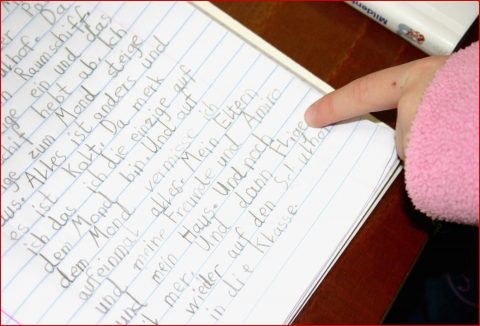 Da
Raumschiff
ein und das
hebt ab. Ich
zum Mond steige
aus. Alles ist anders und
es ist Kalt. Da merk
ich das ich die einzige auf
dem Mond bin. Und auf
dem Mond vermisse ich
aufeinmal alles: Mein Eltern,
und meine Freunde und Amira
und mein Haus. Und noch
mer. Und dann Flige
wieder auf den
in die Klasse.